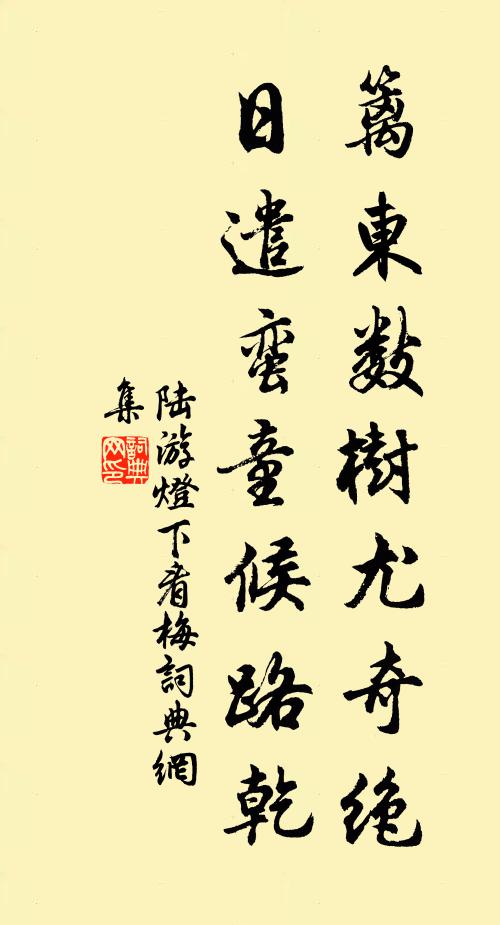 籬東數樹尤奇絶
日遣蛮童候路乾
陆游燈下看梅詞典網
集
詞典
网印